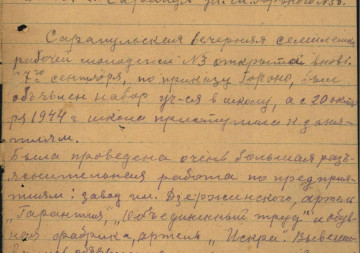 г. Сарапул ул.
Сарапульская вечерняя семилетн.
рабочей молодежи №3 открытой вновь.
7го сентября, по приказу Гороно, был
объявлен набор уч-ся в школу, а с 20 октя
ря 1944 г школа приступила к заня-
тиям.
Была проведена очень большая разъ
яснительная работа по предприя-
тиям: завод им. Дзержинского, артель
„Гарантия", „Объединенный труд" и обув
ная фабрика, артель „Искра". Вывеше